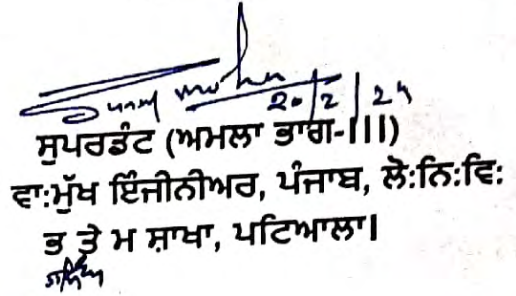 20/2/25
ਸੁਪਰਡੰਟ (ਅਮਲਾ ਭਾਗ-III)
ਵਾ:ਮੁੱਖ ਇੰਜੀਨੀਅਰ, ਪੰਜਾਬ, ਲੋ:ਨਿ:ਵਿ:
ਭ ਤੇ ਮ ਸ਼ਾਖਾ, ਪਟਿਆਲਾ।